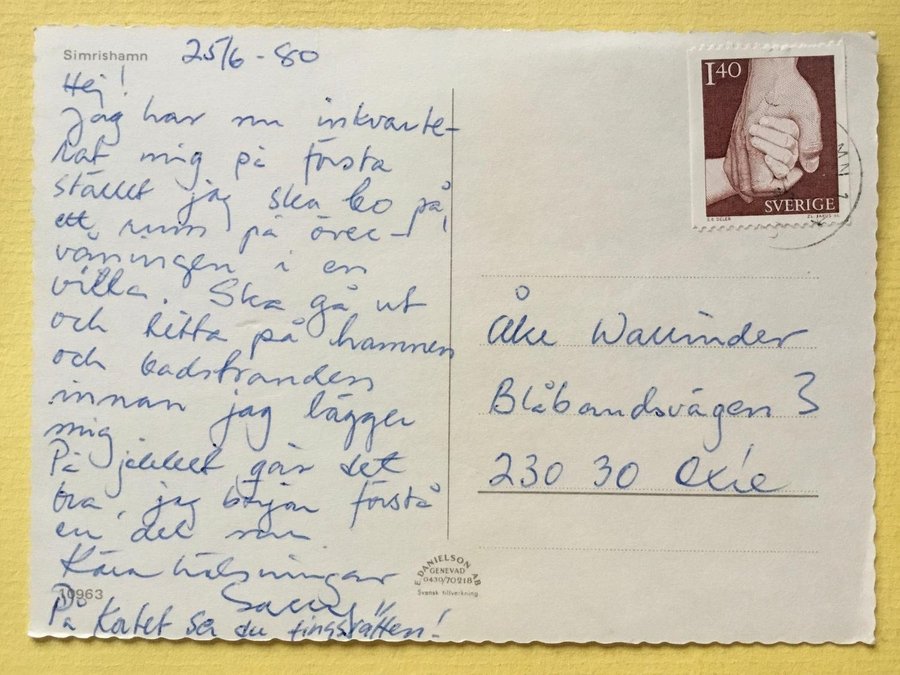 Simrishamn
25/6 - 80
Hej!
Jag har nu inkvarte-
rat mig på första
stället jag ska bo på
ett rum på över-
våningen i en
villa. Ska gå ut
och titta på hamnen
och badstranden
innan jag lägger
mig
På jobbet går det
bra, jag börjar förstå
en del nu
Kära hälsningar
På Kortet ser du tingsrätten!
10963
E. DANIELSON AB
GENEVAD
0430/70218
Svensk tillverkning
1.40
SVERIGE
Åke Wallinder
Blåbandsvägen 3
230 30 Oxie